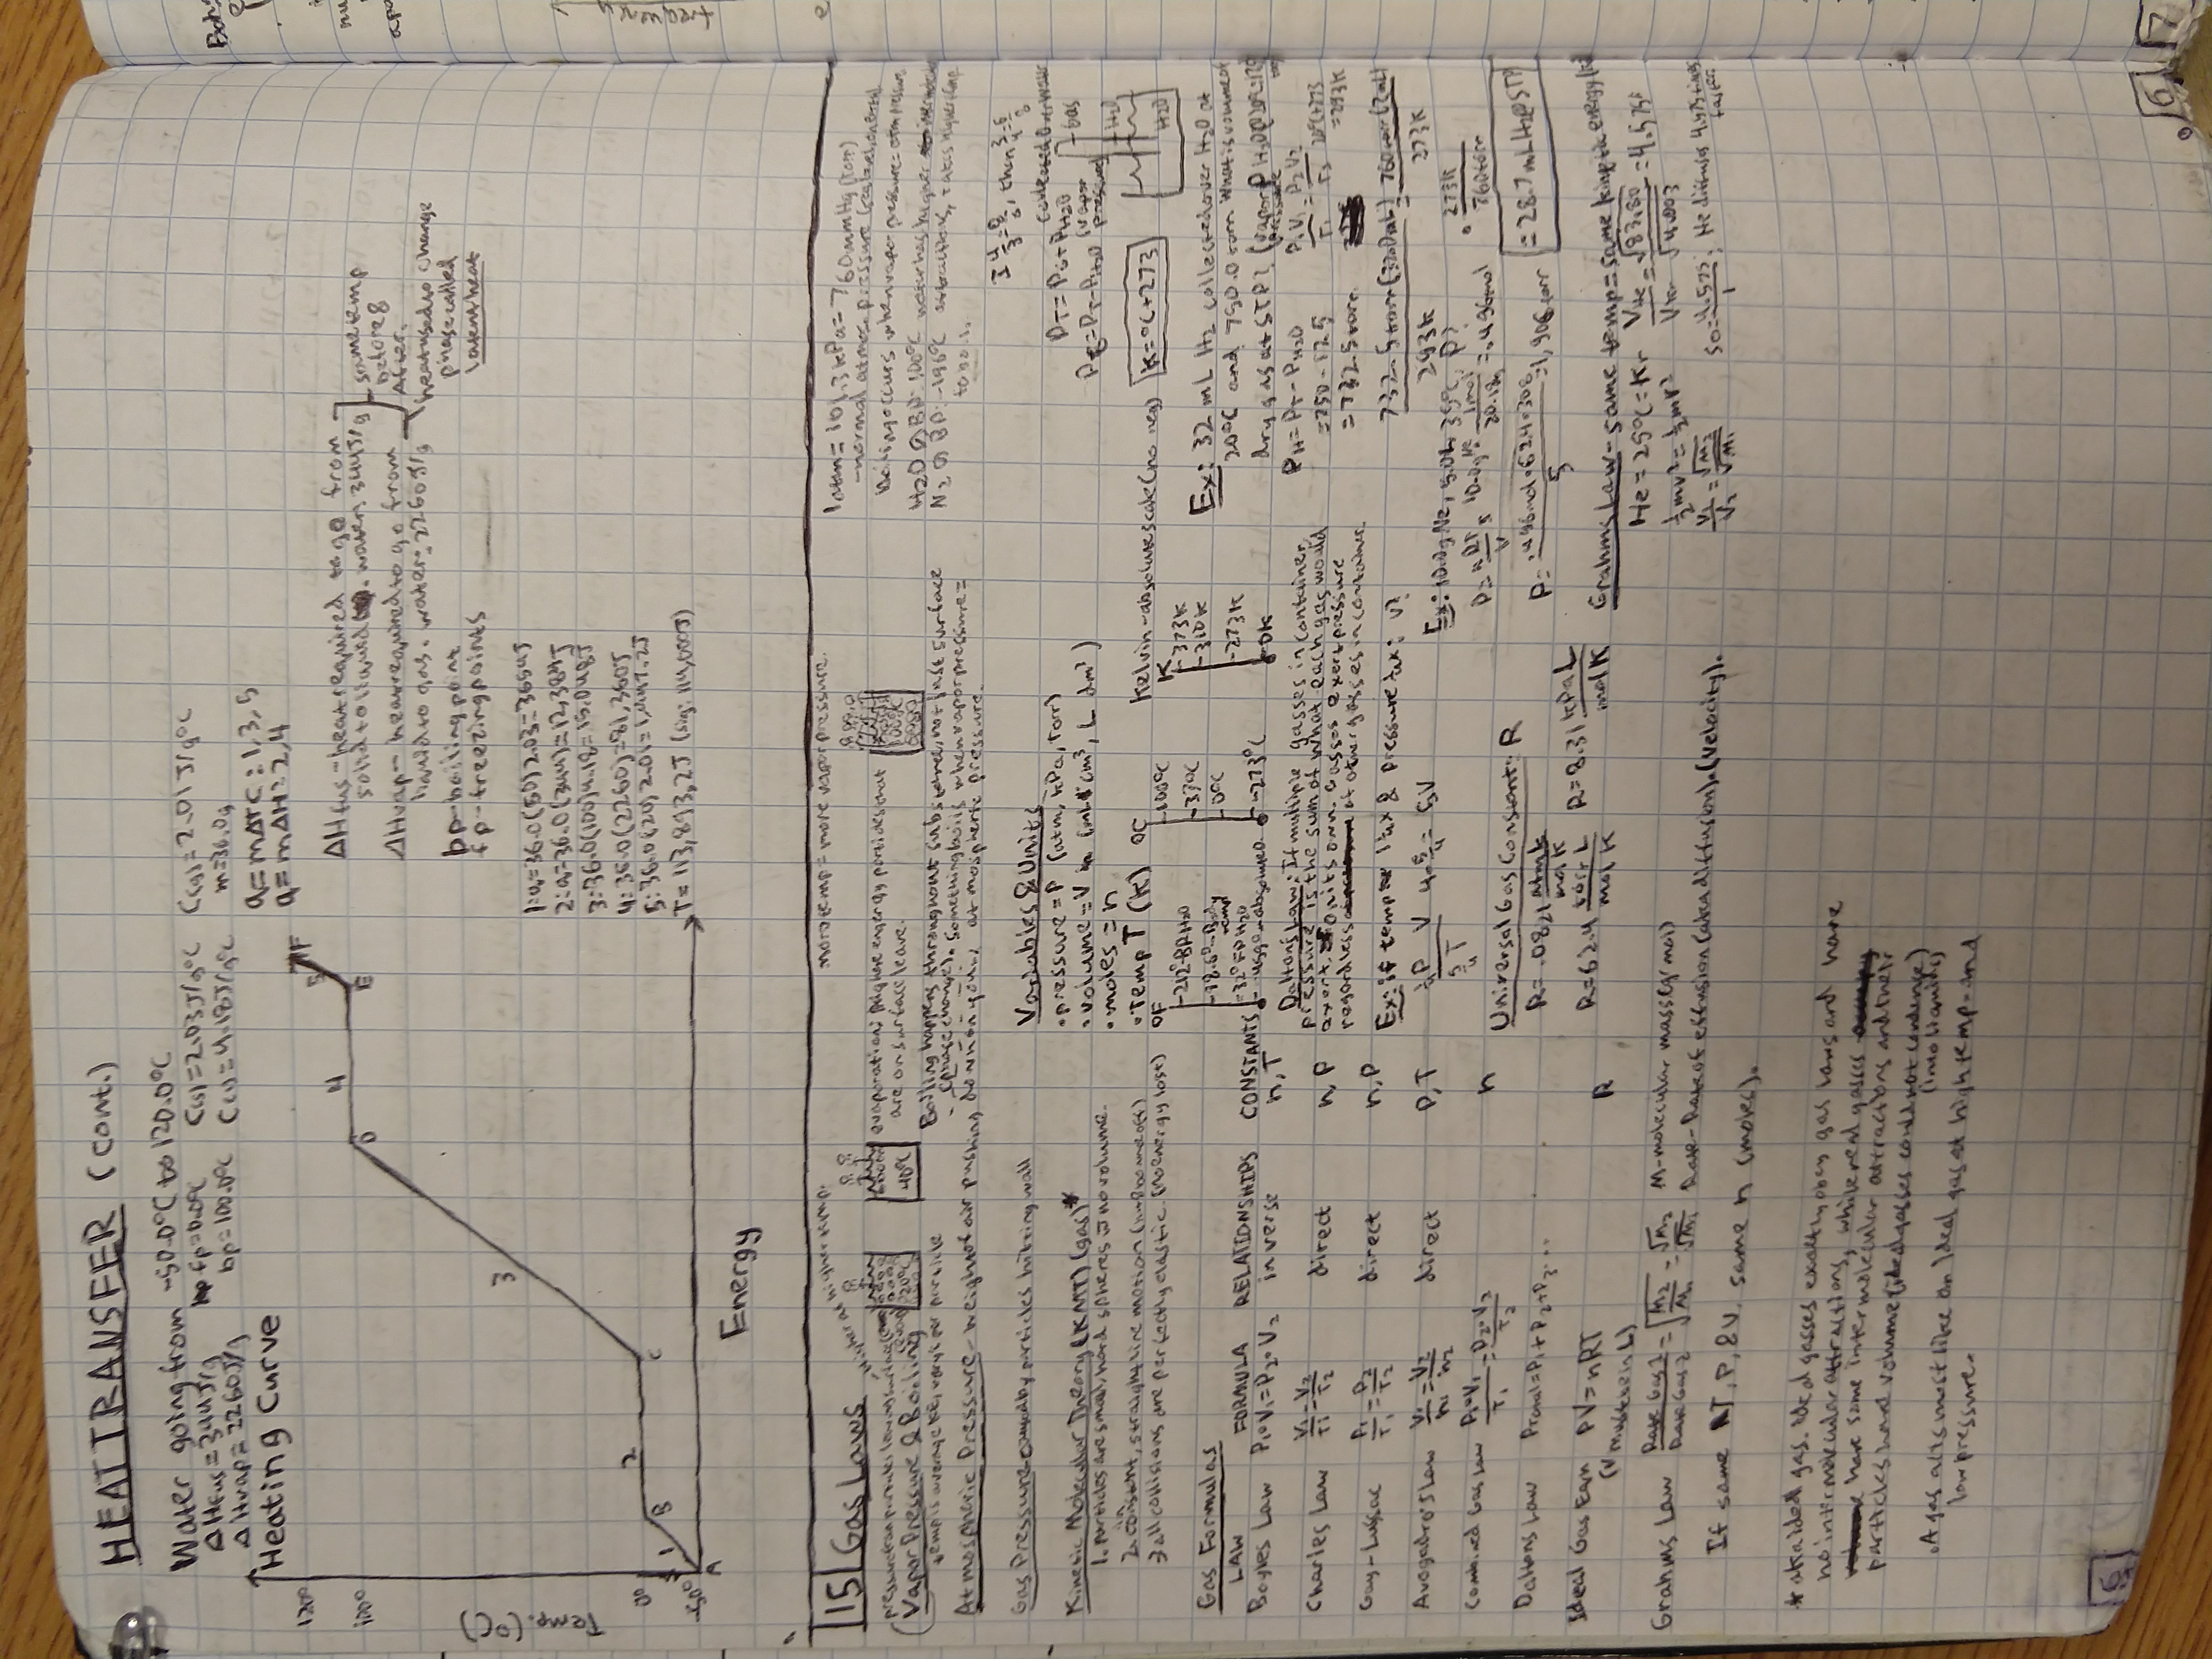 HEAT TRANSFER (cont.)
Water going from -50.0°C to 120.0°C
ΔHfus = 344J/g fp=0.0°C C(s)=2.03J/g°C C(g)=2.01J/g°C
ΔHvap = 2260J/g bp=100.0°C C(l)=4.18J/g°C m=36.0g
Heating Curve
q=mΔTC: 1, 3, 5
q=mΔH: 2, 4
120°
100°
0°
-50°
Temp. (°C)
A
1
B
2
C
3
D
4
E
5
F
Energy
ΔHfus - heat required to go from
solid to liquid. water: 344J/g
ΔHvap - heat required to go from
liquid to gas. water: 2260J/g
same temp
before &
After.
heat used to change
phase called
latent heat
bp - boiling point
fp - freezing points
1: q=36.0(50)2.03=3654J
2: q=36.0(344)=12,384J
3: 36.0(100)4.18=15,048J
4: 36.0(2260)=81,360J
5: 36.0(20)2.01=1,447.2J
T= 113,893.2J (sig: 114,000J)
15 Gas Laws
Higher at higher temp.
more temp = more vapor pressure.
pressure from particles leaving surface
Vapor Pressure & Boiling
temp is average KE, varys per particle
20°C
40°C
evaporation: higher energy particles that
are on surface leave.
100°C
Boiling happens throughout substance, not just surface
(phase change). Something boils when vapor pressure =
atmospheric pressure.
Atmospheric Pressure - weight of air pushing down on you
1 atm = 101.3 kPa = 760 mmHg (torr)
- normal atmos. pressure
Boiling occurs when vapor pressure = atm pressure
H2O BP: 100°C water has higher
N2 BP: -196°C attractions, takes higher temp
to boil.
Gas Pressure - caused by particles hitting wall
Kinetic Molecular Theory (KMT) (gas)*
1. Particles are small, hard spheres no volume.
2. in constant, straight line motion
3. all collisions are perfectly elastic. (no energy lost)
Variables & Units
• pressure = P (atm, kPa, Torr)
• volume = V in (mL cm³, L dm³)
• moles = n
• Temp T (K)
°F
212° BP H2O
98.6° Body
temp
32° FP H2O
-459° absolute 0
°C
100°C
37°C
0°C
-273°C
Kelvin - absolute scale (no neg)
K=°C+273
K
373K
310K
273K
0K
If 4/3=8/6, then 3/4=6/8
Collected Over Water
PT = PG + PH2O
PG = PT - PH2O (vapor
pressure)
Gas
H2O
H2O
Gas Formulas
LAW FORMULA RELATIONSHIPS CONSTANTS
Boyles Law P1•V1=P2•V2 inverse n, T
Charles Law V1/T1=V2/T2 direct n, P
Gay-Lussac P1/T1=P2/T2 direct n, P
Avogadro's Law V1/n1=V2/n2 direct P, T
Combined Gas Law P1•V1/T1=P2•V2/T2 n
Daltons Law Ptotal=P1+P2+P3...
Ideal Gas Eqn PV=nRT R
(V must be in L)
Grahms Law Rate Gas 1/Rate Gas 2=√M2/M1=√M2/√M1 M-molecular mass(g/mol)
Rate-Rate of effusion (aka diffusion). (Velocity).
If same T, P, & V, same n (moles).
Daltons Law: If multiple gasses in container,
pressure is the sum of what each gas would
exert on its own. Gasses exert pressure
regardless of other gasses in container.
Ex: if temp 1¼x & pressure ¼x: V?
¼P V/5/4 T 4•5/4= 5V
Universal Gas Constant: R
R=.0821 atm L/mol K
R=62.4 torr L/mol K R=8.31 kPa L/mol K
Ex: 32 mL H2 collected over H2O at
20°C and 750.0 torr. What is volume of
dry gas at STP?
PH=PT-PH2O P1V1/T1=P2V2/T2 20°C+273
=750-17.5 =293K
=732.5 torr
732.5 torr (32.0mL)/293K=760 torr (?mL)/273K
• 273K/760torr
=28.7 mL H2@STP
Ex: 10.0g Ne, 5.0L, 35°C, P?
P=nRT/V 10.0g Ne 1mol/20.18g=.496mol
P=.496mol•62.4•308/5=1,906 torr
Grahms Law - same temp = same kinetic energy
He=25°C=Kr VHe/VKr=√83.80/√4.003=4.575
½mv²=½mv²
V1/V2=√M2/√M1 so=4.575/1; He diffuses 4.575 times
faster
* aka ideal gas. ideal gasses exactly obey gas laws and have
no intermolecular attractions, while real gasses
have some intermolecular attractions and their
particles have volume (ideal gasses could not condense)
(into liquids)
• A gas acts most like an ideal gas at high temp. and
low pressure.
6
7